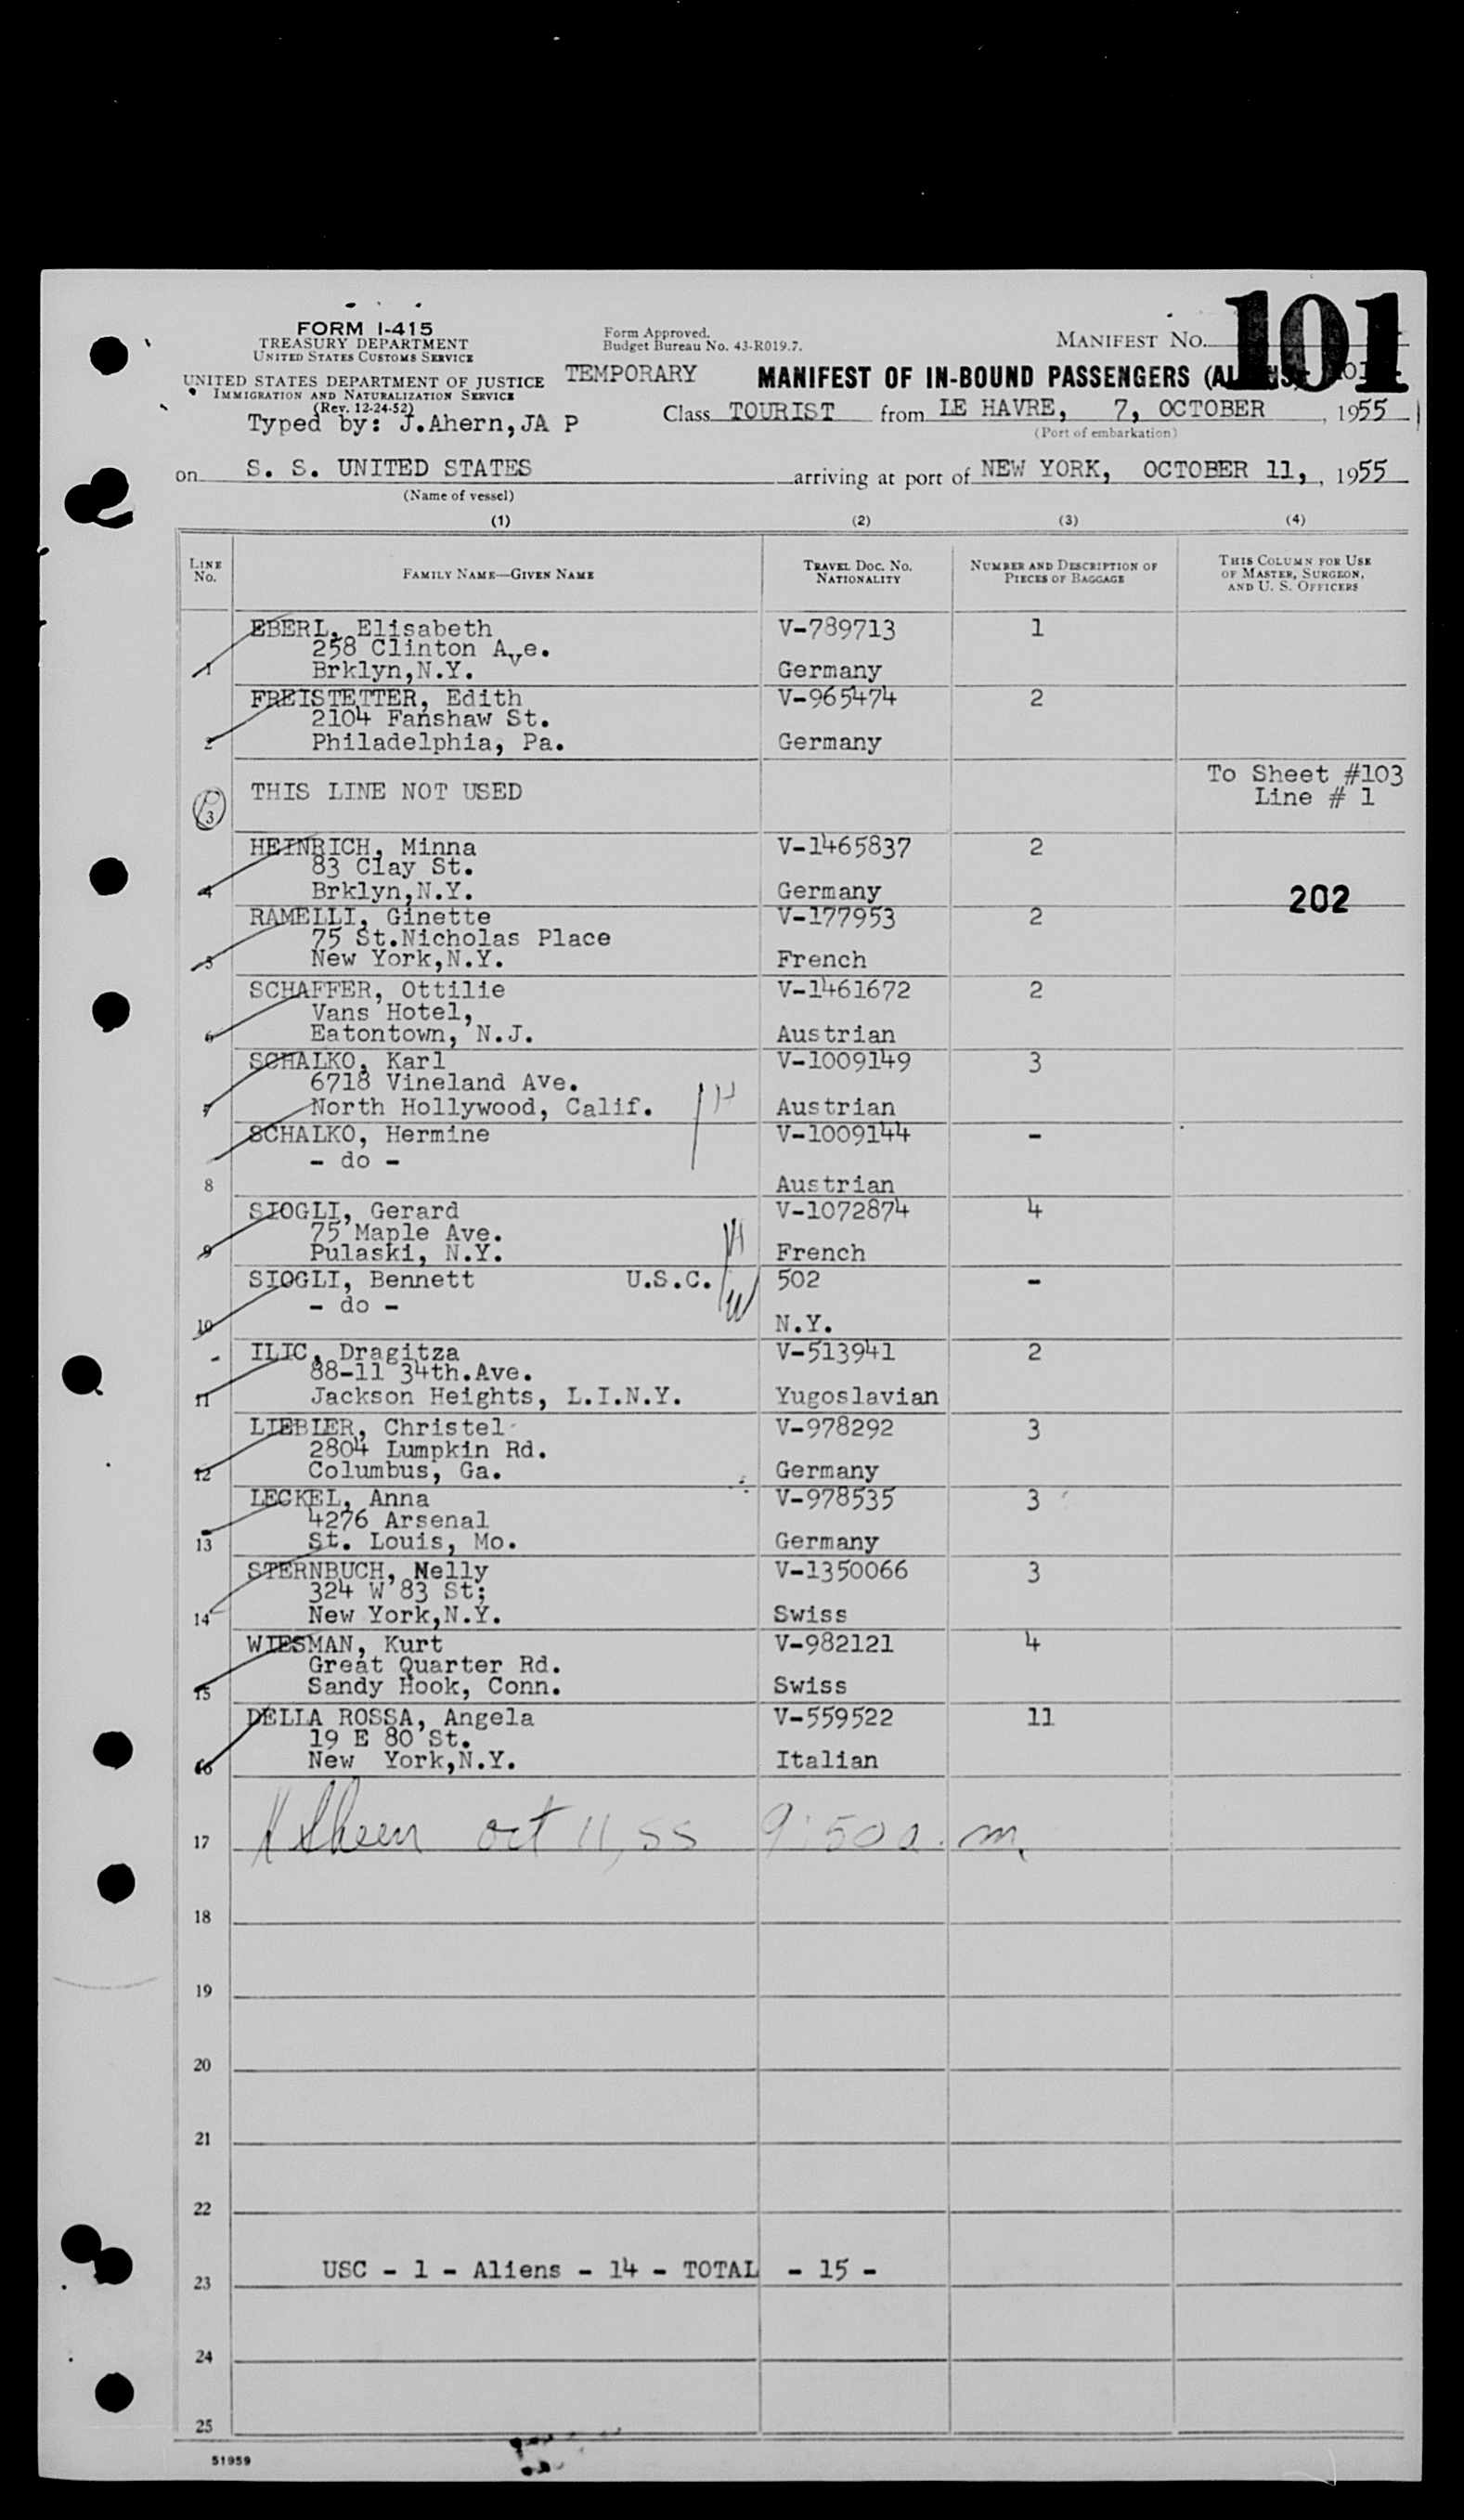 101
FORM I-415
TREASURY DEPARTMENT
UNITED STATES CUSTOMS SERVICE
Form Approved.
Budget Bureau No. 43-R019.7.
MANIFEST NO.
UNITED STATES DEPARTMENT OF JUSTICE
IMMIGRATION AND NATURALIZATION SERVICE
(Rev. 12-24-52)
TEMPORARY MANIFEST OF IN-BOUND PASSENGERS
Typed by: J.Ahern,JA P
Class TOURIST from LE HAVRE, 7, OCTOBER, 1955
(Port of embarkation)
on S. S. UNITED STATES arriving at port of NEW YORK, OCTOBER 11, , 1955
(Name of vessel)
(1) (2) (3) (4)
LINE NO.
FAMILY NAME—GIVEN NAME
TRAVEL DOC. NO. NATIONALITY
NUMBER AND DESCRIPTION OF PIECES OF BAGGAGE
THIS COLUMN FOR USE OF MASTER, SURGEON, AND U. S. OFFICERS
EBERL, Elisabeth V-789713 1
258 Clinton Ave.
1 Brklyn,N.Y. Germany
FREISTETTER, Edith V-965474 2
2104 Fanshaw St.
2 Philadelphia, Pa. Germany
To Sheet #103
3 THIS LINE NOT USED Line # 1
HEINRICH, Minna V-1465837 2
83 Clay St.
4 Brklyn,N.Y. Germany 202
RAMELLI, Ginette V-177953 2
75 St.Nicholas Place
5 New York,N.Y. French
SCHAFFER, Ottilie V-1461672 2
Vans Hotel,
6 Eatontown, N.J. Austrian
SCHALKO, Karl V-1009149 3
6718 Vineland Ave.
7 North Hollywood, Calif. Austrian
SCHALKO, Hermine V-1009144 -
- do -
8 Austrian
SIOGLI, Gerard V-1072874 4
75 Maple Ave.
9 Pulaski, N.Y. French
SIOGLI, Bennett U.S.C. 502 -
- do -
10 N.Y.
ILIC, Dragitza V-513941 2
88-11 34th.Ave.
11 Jackson Heights, L.I.N.Y. Yugoslavian
LIEBIER, Christel V-978292 3
2804 Lumpkin Rd.
12 Columbus, Ga. Germany
LECKEL, Anna V-978535 3
4276 Arsenal
13 St. Louis, Mo. Germany
STERNBUCH, Nelly V-1350066 3
324 W 83 St;
14 New York,N.Y. Swiss
WIESMAN, Kurt V-982121 4
Great Quarter Rd.
15 Sandy Hook, Conn. Swiss
DELLA ROSSA, Angela V-559522 11
19 E 80 St.
16 New York,N.Y. Italian
17 oct 11, 55 9:50 a.m.
18
19
20
21
22
23 USC - 1 - Aliens - 14 - TOTAL - 15 -
24
25
51959